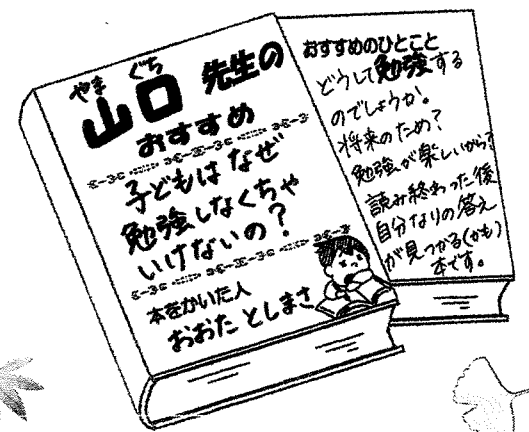 やま ぐち
山口 先生の
おすすめ
子どもはなぜ
勉強しなくちゃ
いけないの?
本をかいた人
おおた としまさ
おすすめのひとこと
どうして勉強する
のでしょうか。
将来のため?
勉強が楽しいから?
読み終わった後
自分なりの答え
が見つかる(かも)
本です。